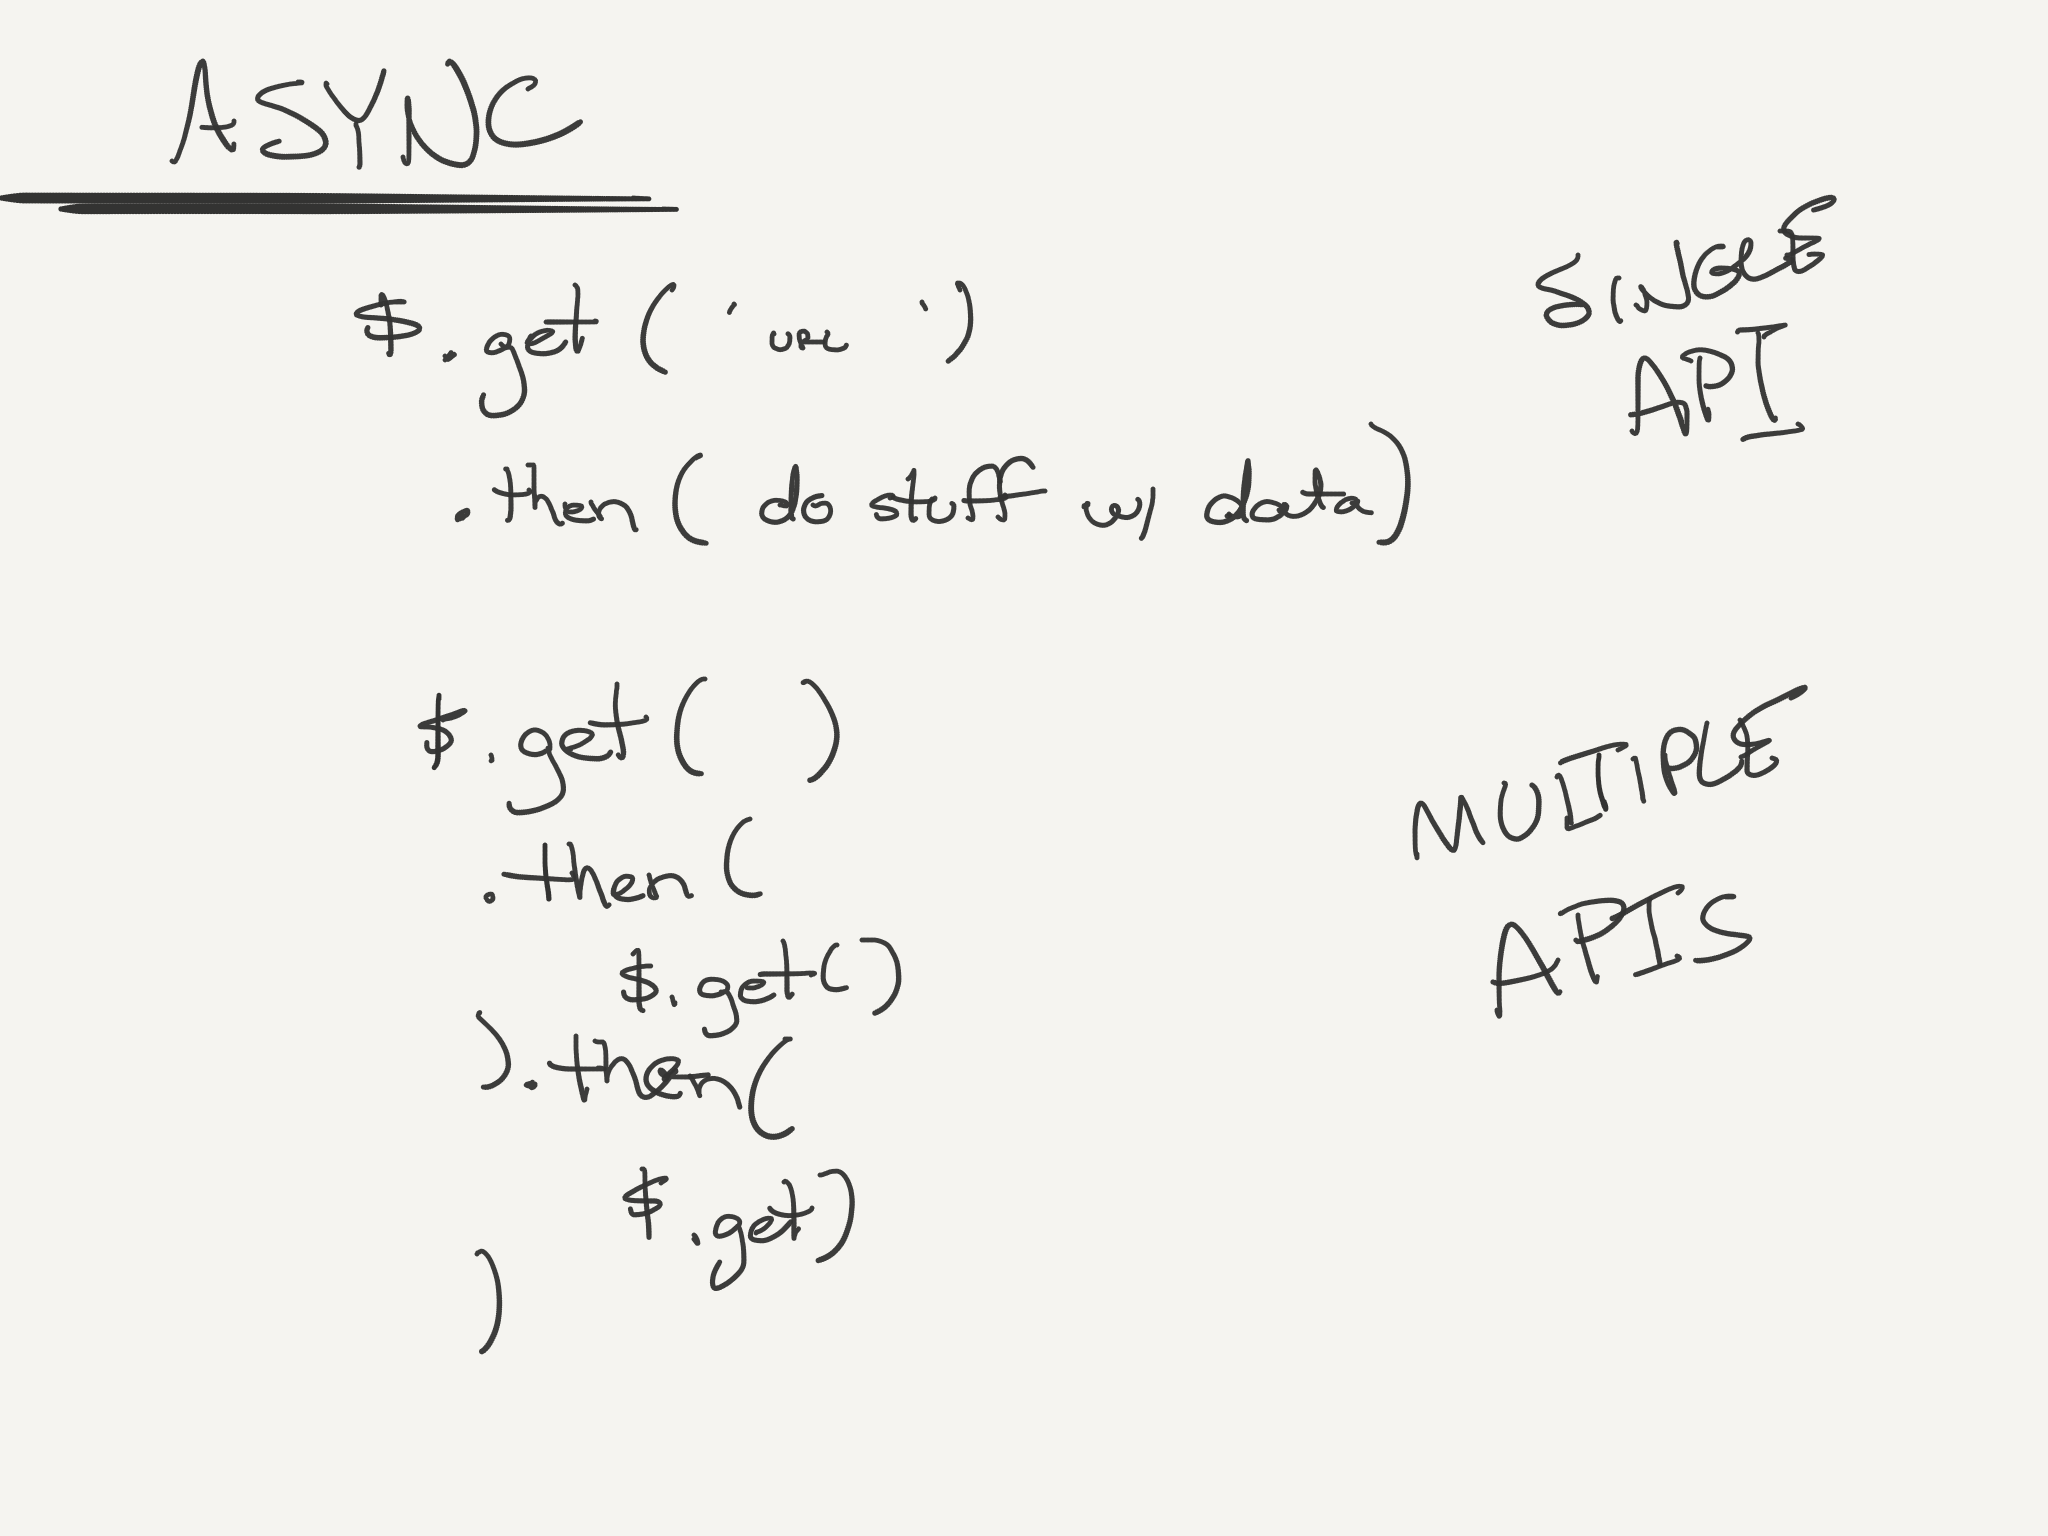 ASYNC
$.get ( ' URL ' )
.then ( do stuff w/ data )
SINGLE
API
$.get ( )
.then (
$.get ( )
) .then (
$.get )
)
MULTIPLE
APIS